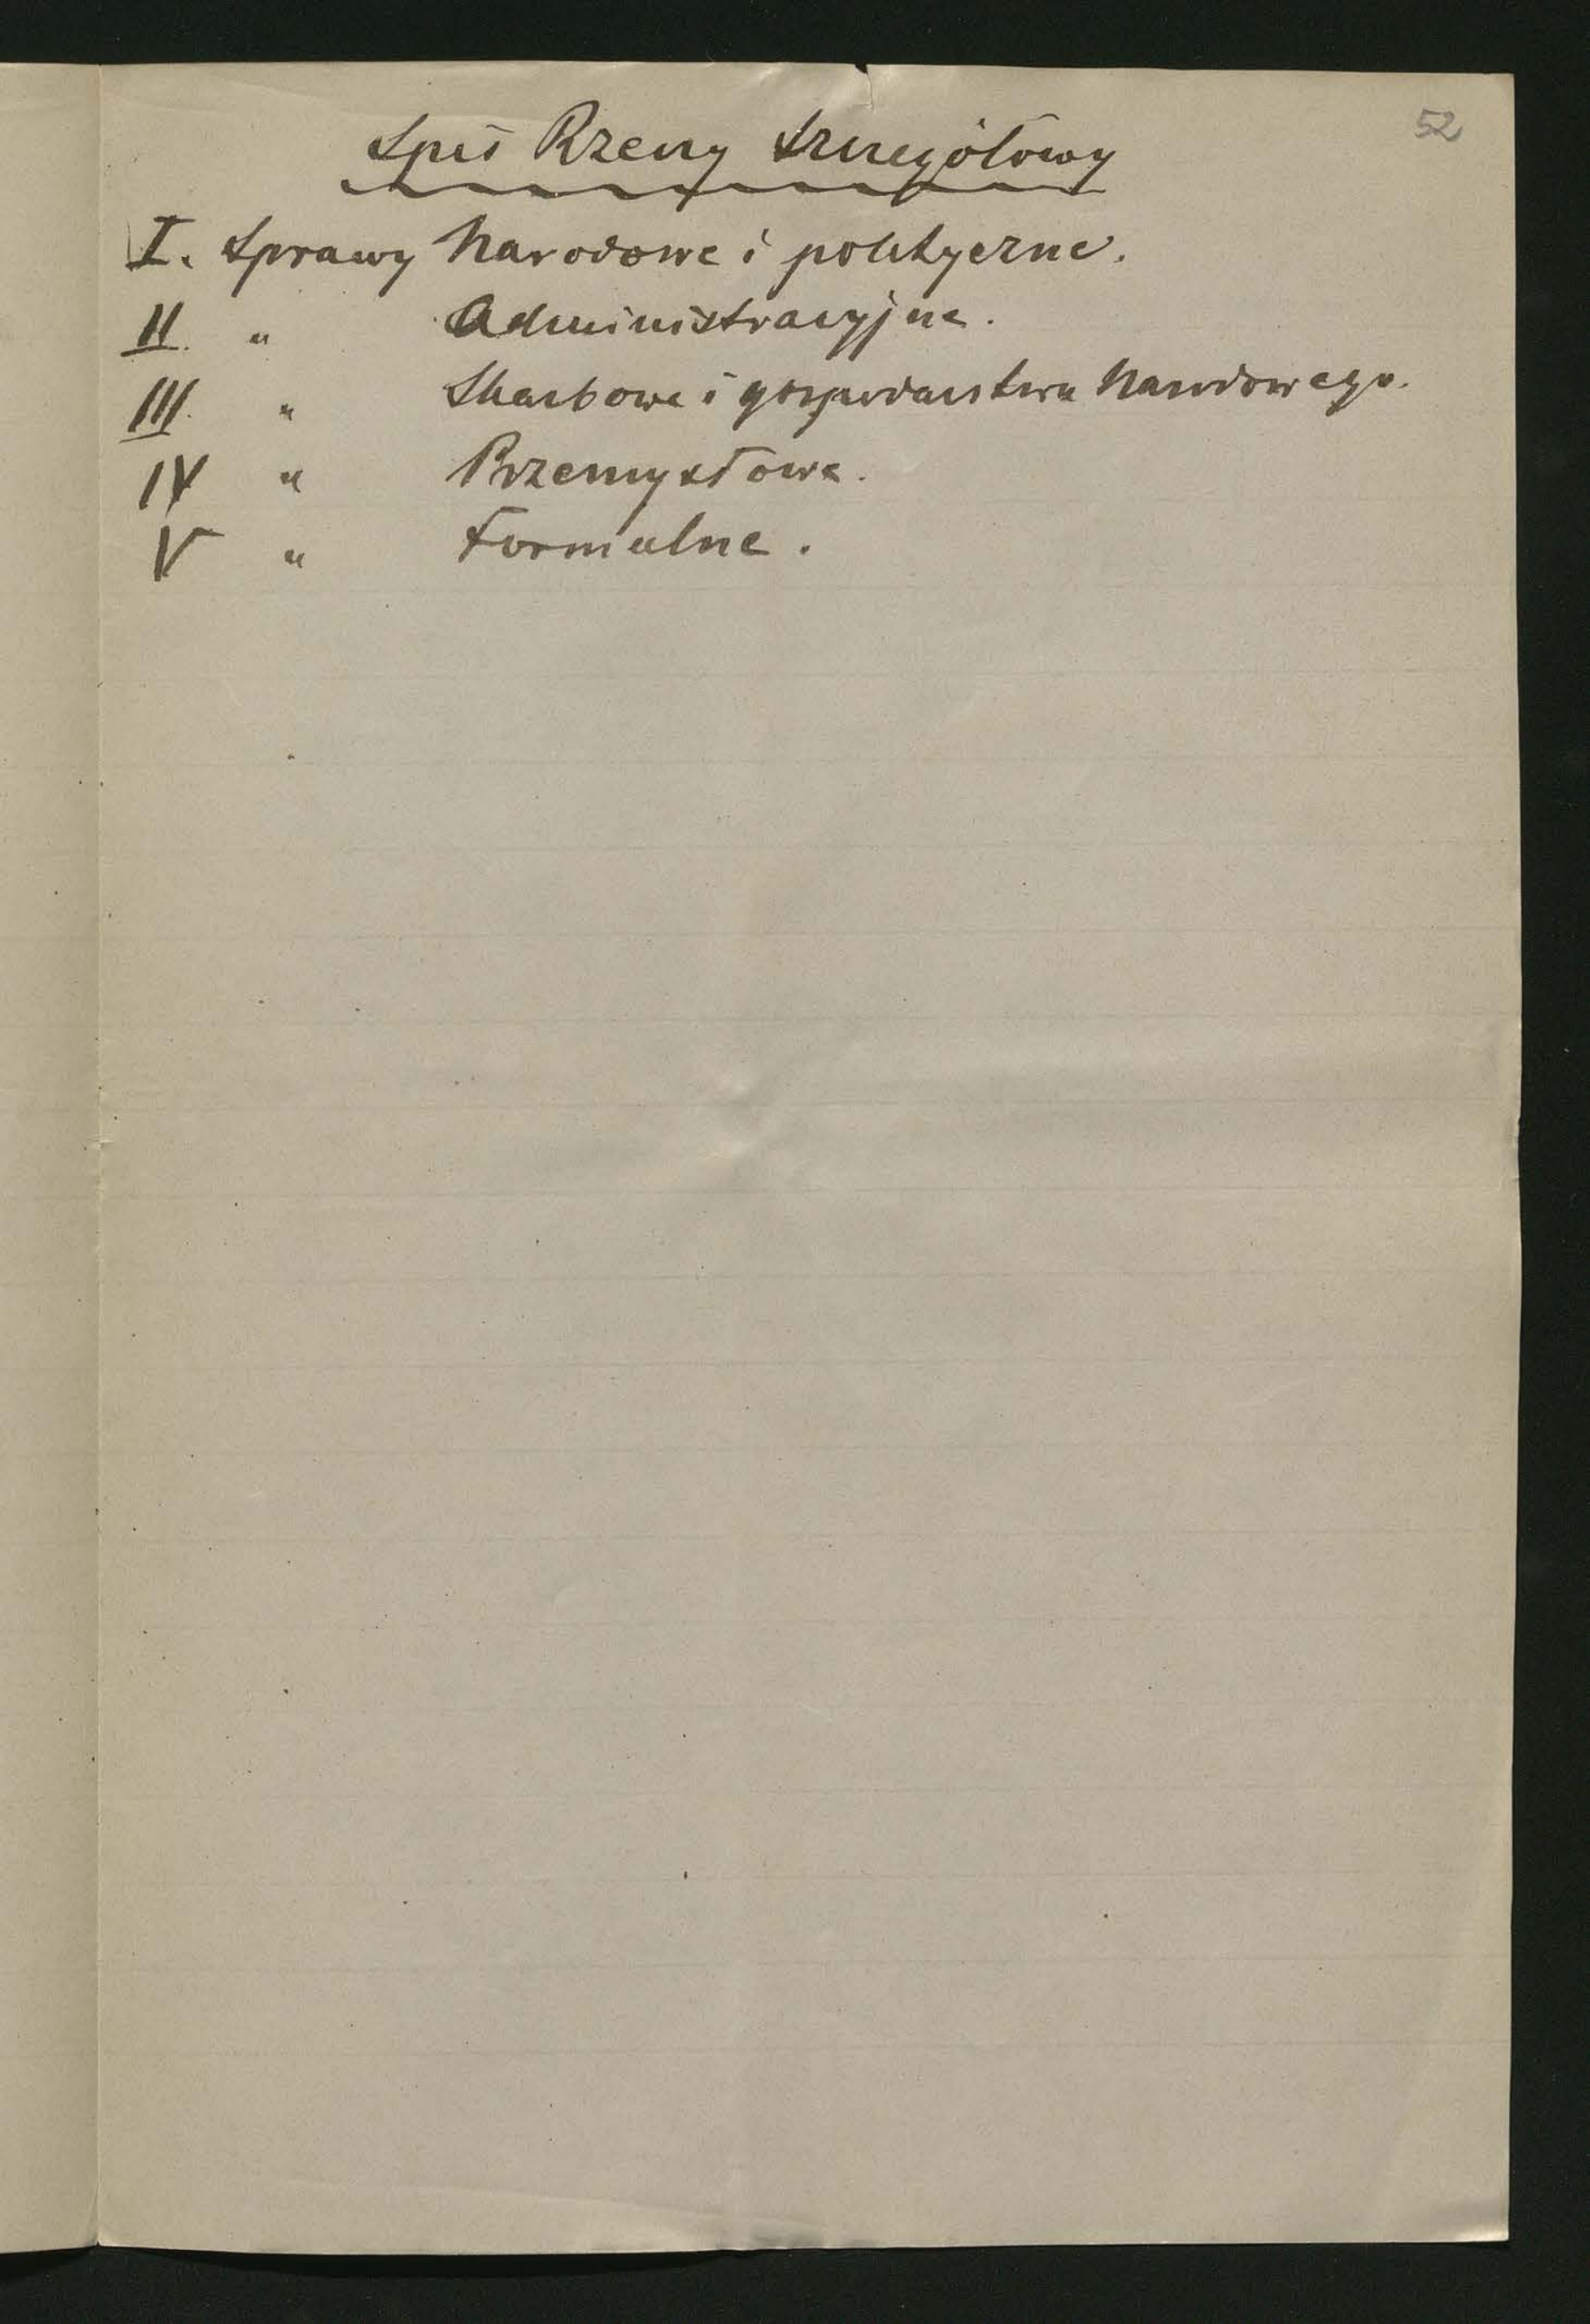 52
Spis Rzeczy Szczegółowy
I. Sprawy Narodowe i polityczne.
II. " Administracyjne.
III. " Skarbowe i gospodarstwa Narodowego.
IV " Przemysłowe.
V " Formalne.